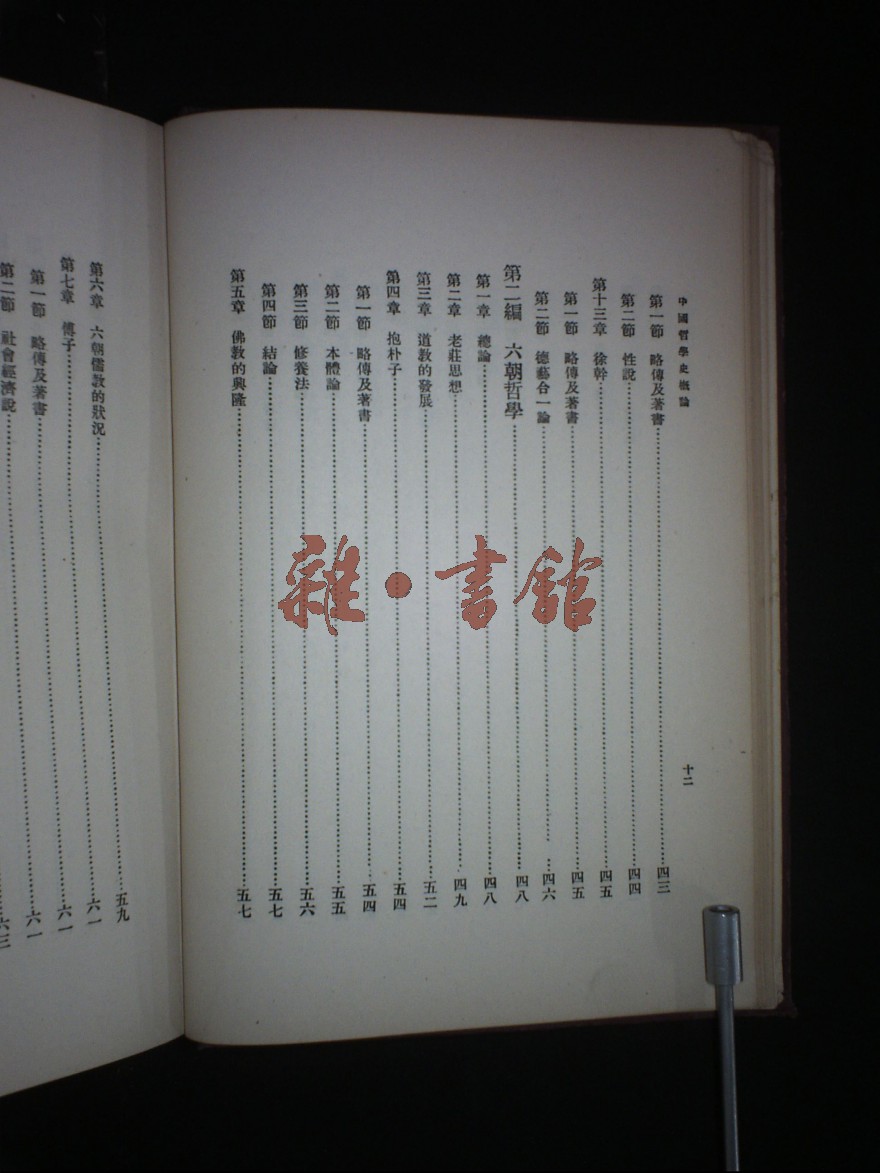 中國哲學史概論
十二
第一節 略傳及著書 四三
第二節 性說 四四
第十三章 徐幹 四五
第一節 略傳及著書 四五
第二節 德藝合一論 四六
第二編 六朝哲學 四八
第一章 總論 四八
第二章 老莊思想 四九
第三章 道教的發展 五二
第四章 抱朴子 五四
第一節 略傳及著書 五四
第二節 本體論 五五
第三節 修養法 五六
第四節 結論 五七
第五章 佛教的興隆 五七
第六章 六朝儒教的狀況 五九
第七章 傅子 六一
第一節 略傳及著書 六一
第二節 社會經濟說 六三
雜·書館